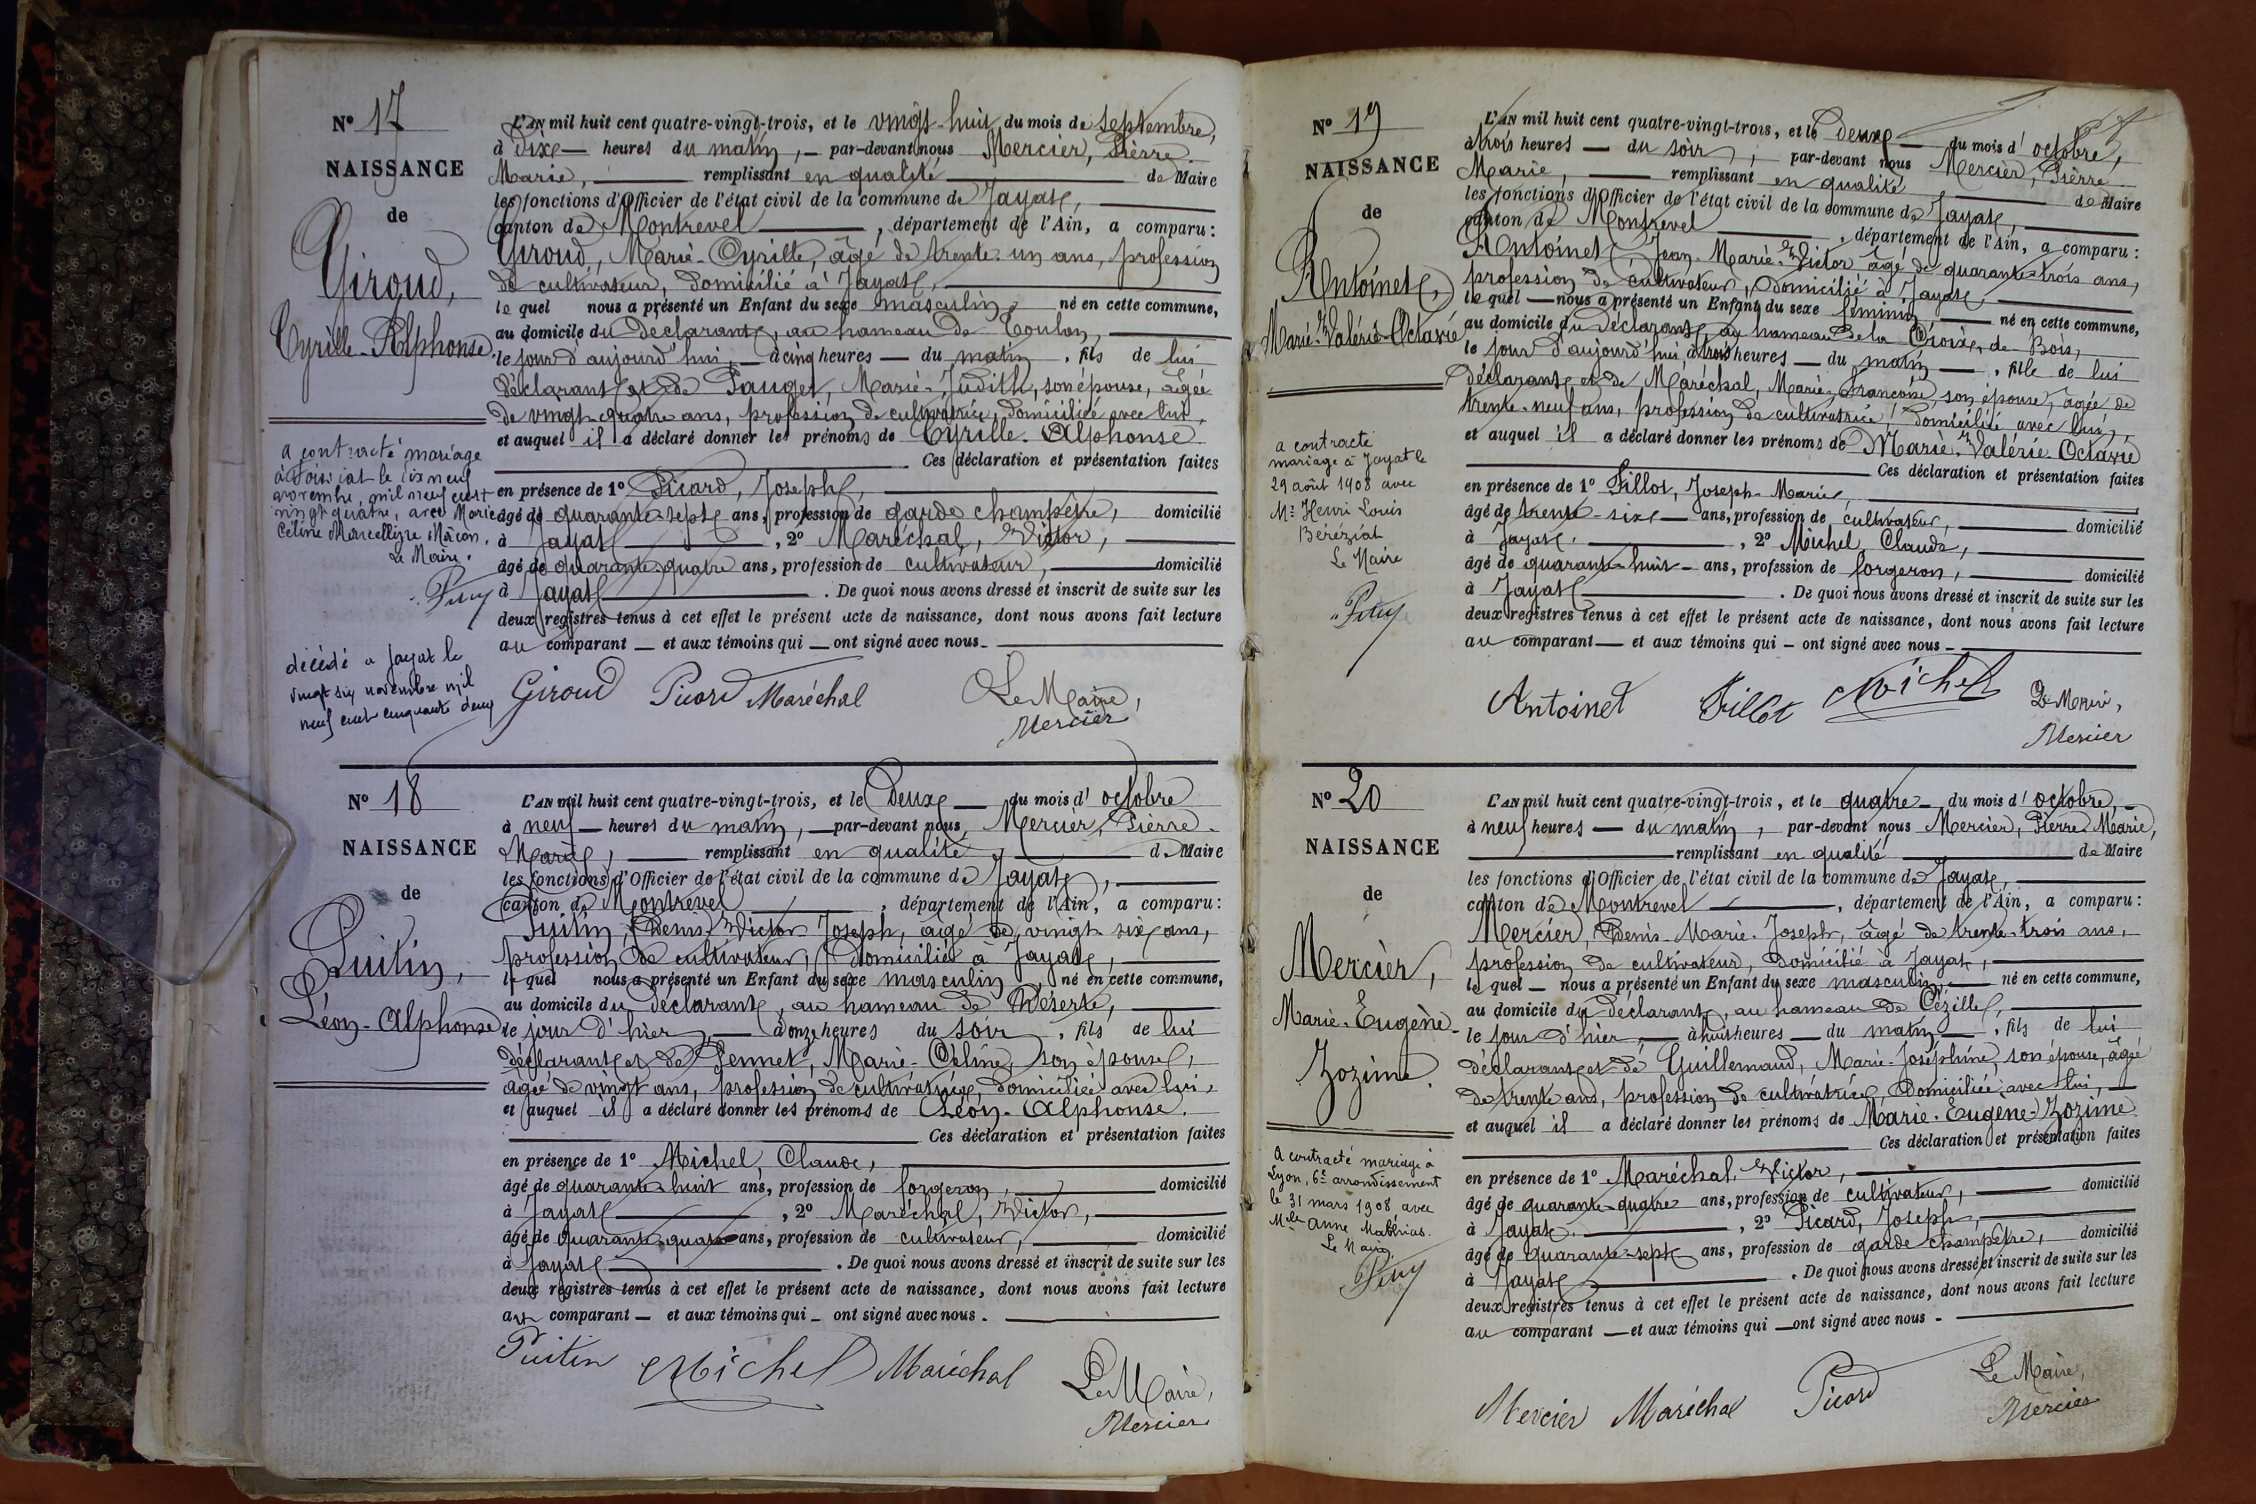 No 17
NAISSANCE
de
Giroud,
Cyrille-Alphonse.
a contracté mariage
à Foissiat le dix neuf
novembre, mil neuf cent
vingt quatre, avec Marie
Céline Marcelline Mâcon.
Le Maire.
décédé à Jayat le
vingt six novembre mil
neuf cent cinquante deux
L'AN mil huit cent quatre-vingt-trois, et le vingt-huit du mois de Septembre,
à Dix heures du matin, par-devant nous Mercier, Pierre
Marie, remplissant en qualité de Maire
les fonctions d'Officier de l'état civil de la commune de Jayat,
canton de Montrevel, département de l'Ain, a comparu:
Giroud, Marie-Cyrille, âgé de trente-un ans, profession
de cultivateur, domicilié à Jayat,
le quel nous a présenté un Enfant du sexe masculin, né en cette commune,
au domicile du déclarant, au hameau de
le jour d'aujourd'hui à cinq heures du matin, fils de lui
déclarant et de Pauget, Marie-Judith, son épouse, âgée
de vingt-quatre ans, profession de cultivatrice, domiciliée avec lui,
et auquel il a déclaré donner les prénoms de Cyrille-Alphonse
Ces déclaration et présentation faites
en présence de 1o Picard, Joseph,
âgé de quarante-sept ans, profession de garde champêtre, domicilié
à Jayat, 2o Maréchal, Victor,
âgé de quarante-quatre ans, profession de cultivateur, domicilié
à Jayat. De quoi nous avons dressé et inscrit de suite sur les
deux registres tenus à cet effet le présent acte de naissance, dont nous avons fait lecture
au comparant et aux témoins qui ont signé avec nous.
Giroud Picard Maréchal Le Maire,
Mercier
No 18
NAISSANCE
de
Puitin,
Léon-Alphonse
L'AN mil huit cent quatre-vingt-trois, et le Deux du mois d'octobre
à neuf heures du matin, par-devant nous, Mercier, Pierre
Marie, remplissant en qualité de Maire
les fonctions d'Officier de l'état civil de la commune de Jayat,
canton de Montrevel, département de l'Ain, a comparu:
Puitin, Denis-Victor-Joseph, âgé de vingt-six ans,
profession de cultivateur, domicilié à Jayat,
le quel nous a présenté un Enfant du sexe masculin, né en cette commune,
au domicile du déclarant, au hameau de Déserte,
le jour d'hier, à onze heures du soir, fils de lui
déclarant et de Pennet, Marie-Céline, son épouse,
âgée de vingt ans, profession de cultivatrice, domiciliée avec lui,
et auquel il a déclaré donner les prénoms de Léon-Alphonse.
Ces déclaration et présentation faites
en présence de 1o Michel, Claude,
âgé de quarante-huit ans, profession de forgeron, domicilié
à Jayat, 2o Maréchal, Victor,
âgé de quarante-quatre ans, profession de cultivateur, domicilié
à Jayat. De quoi nous avons dressé et inscrit de suite sur les
deux registres tenus à cet effet le présent acte de naissance, dont nous avons fait lecture
au comparant et aux témoins qui ont signé avec nous.
Puitin Michel Maréchal Le Maire,
Mercier
No 19
NAISSANCE
de
Antoinet,
Marie-Valérie-Octavie
a contracté
mariage à Jayat le
29 août 1908 avec
Mr Henri Louis
Béréziat
Le Maire
L'AN mil huit cent quatre-vingt-trois, et le Deux du mois d'octobre,
à trois heures du soir, par-devant nous Mercier, Pierre
Marie, remplissant en qualité de Maire
les fonctions d'Officier de l'état civil de la commune de Jayat,
canton de Montrevel, département de l'Ain, a comparu:
Antoinet, Jean-Marie-Victor âgé de quarante-trois ans,
profession de cultivateur, domicilié à Jayat,
le quel nous a présenté un Enfant du sexe féminin né en cette commune,
au domicile du déclarant, au hameau de la Croix-de-Bois,
le jour d'aujourd'hui à trois heures du matin, fille de lui
déclarant et de Maréchal, Marie-Françoise, son épouse, âgée de
trente-neuf ans, profession de cultivatrice, domiciliée avec lui,
et auquel il a déclaré donner les prénoms de Marie-Valérie-Octavie
Ces déclaration et présentation faites
en présence de 1o Fillot, Joseph-Marie,
âgé de trente-six ans, profession de cultivateur, domicilié
à Jayat, 2o Michel Claude,
âgé de quarante-huit ans, profession de forgeron, domicilié
à Jayat. De quoi nous avons dressé et inscrit de suite sur les
deux registres tenus à cet effet le présent acte de naissance, dont nous avons fait lecture
au comparant et aux témoins qui ont signé avec nous.
Antoinet Fillot Michel Le Maire,
Mercier
No 20
NAISSANCE
de
Mercier,
Marie-Eugène-
Zozime.
a contracté mariage à
Lyon, 6e arrondissement
le 31 mars 1908 avec
Mlle Anne Mathias.
Le Maire
L'AN mil huit cent quatre-vingt-trois, et le quatre du mois d'octobre,
à neuf heures du matin, par-devant nous Mercier, Pierre-Marie,
remplissant en qualité de Maire
les fonctions d'Officier de l'état civil de la commune de Jayat,
canton de Montrevel, département de l'Ain, a comparu:
Mercier, Denis-Marie-Joseph, âgé de trente-trois ans,
profession de cultivateur, domicilié à Jayat,
le quel nous a présenté un Enfant du sexe masculin, né en cette commune,
au domicile du déclarant, au hameau de Cézille,
le jour d'hier, à huit heures du matin, fils de lui
déclarant et de Guillemaud, Marie-Joséphine, son épouse, âgée
de trente ans, profession de cultivatrice, domiciliée avec lui,
et auquel il a déclaré donner les prénoms de Marie-Eugène-Zozime
Ces déclaration et présentation faites
en présence de 1o Maréchal, Victor,
âgé de quarante-quatre ans, profession de cultivateur, domicilié
à Jayat, 2o Picard, Joseph,
âgé de quarante-sept ans, profession de garde champêtre, domicilié
à Jayat. De quoi nous avons dressé et inscrit de suite sur les
deux registres tenus à cet effet le présent acte de naissance, dont nous avons fait lecture
au comparant et aux témoins qui ont signé avec nous.
Mercier Maréchal Picard Le Maire,
Mercier